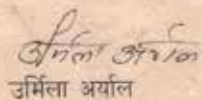 उर्मिला अर्याल
उर्मिला अर्याल